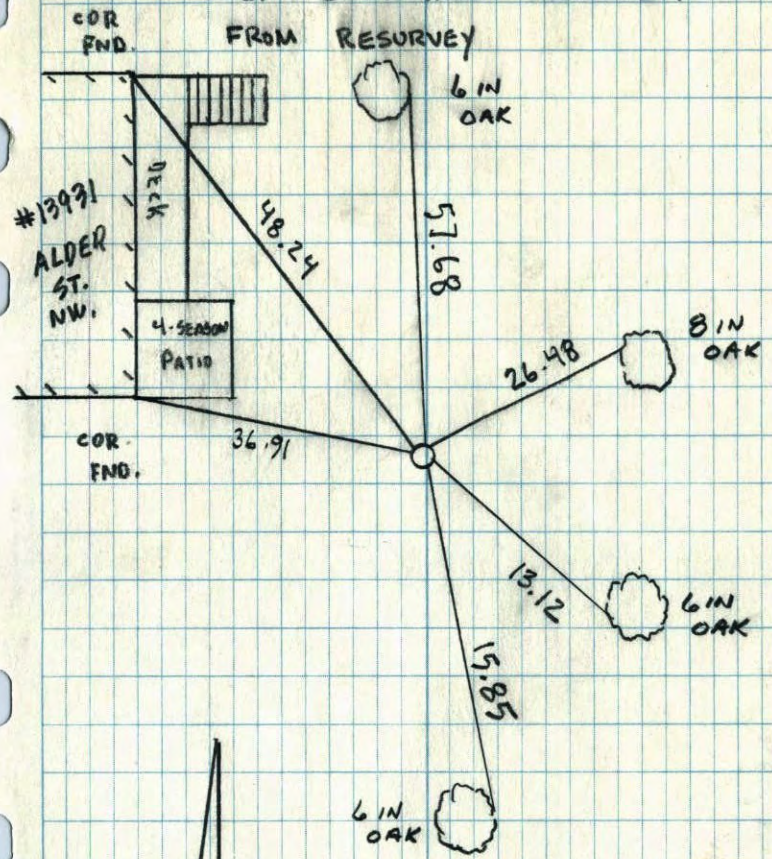 COR
FND.
FROM RESURVEY
6 IN
OAK
DECK
#13931
ALDER
ST.
NW.
48.24
57.68
4-SEASON
PATIO
26.48
8 IN
OAK
36.91
COR
FND.
13.12
6 IN
OAK
15.85
6 IN
OAK